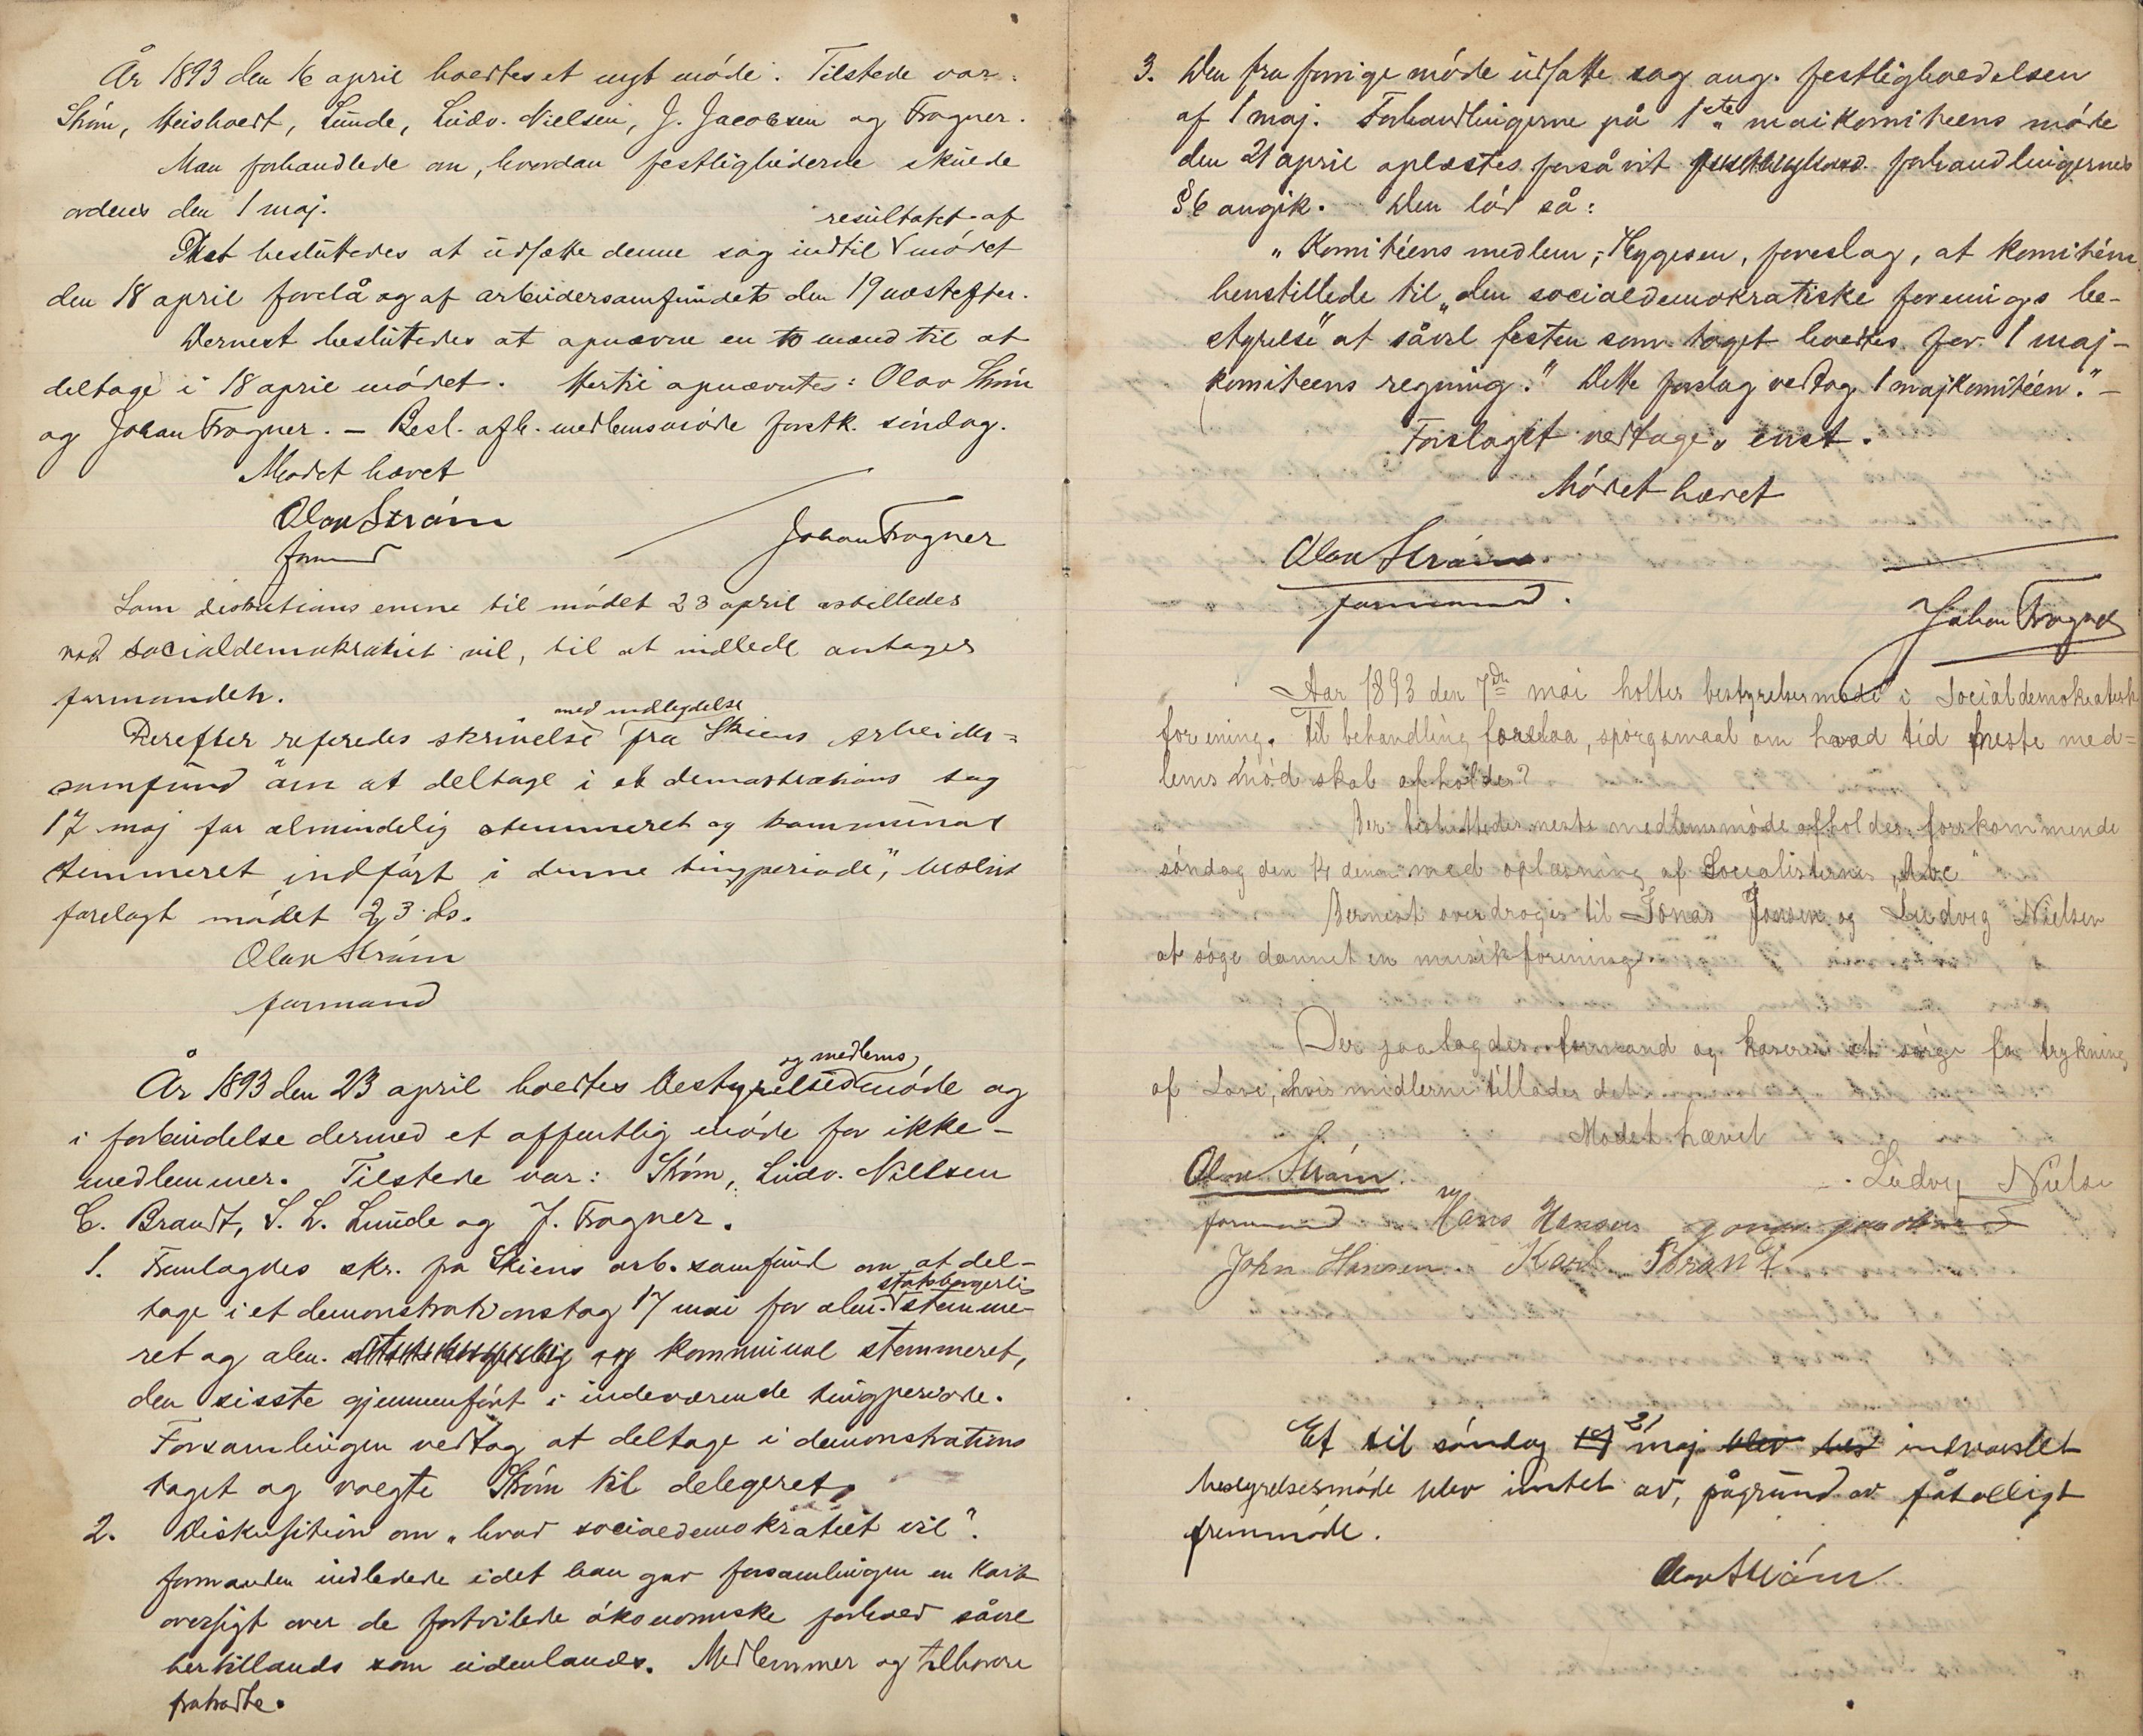 År 1893 den 16 april holdtes et nyt móde. Tilstede var:
Stróm, Heisholdt, Lunde, Ludv. Nielsen, J. Jacobsen og Fragner.
Man forhandlede om, hvordan festlighederne skulde
ordenes den 1 maj.
Det besluttedes at udsætte denne sag indtil resultatet af módet
den 18 april forelå og af arbeidersamfundets den 19 næstefter.
Dernest besluttedes at opnævne en to mænd til at
deltage i 18 april módet. Hertil opnævntes: Olav Stróm
og Johan Fragner. – Besl. afh. medlemsmóde førstk. sóndag.
Mødet hævet
Olav Stróm
formand
Johan Fragner
Som diskutions emne til mødet 23 april opstilledes
vad socialdemokratiet vil, til at indlede antages
formanden.
Derefter referedes skrivelse med indbydelse fra Skiens Arbeider=
samfund om at deltage i et demonstrations tog
17 maj for almindelig stemmeret og kommunal
stemmeret indfórt i denne tingperiode", beslut
forelagt módet 23 ds.
Olav Stróm
formand
År 1893 den 23 april holdtes bestyrelses og medlemsmóde og
i forbindelse dermed et offentlig móde for ikke-
medlemmer. Tilstede var: Stróm, Ludv. Nielsen
C. Brandt, S. L. Lunde og J. Fragner.
1. Fremlagdes skr. fra Skiens arb. samfund om at del-
tage i et demonstrationstog 17 mai for alm. statsborgerlig stemme-
ret og alm. statsborgerlig og kommunal stemmeret,
den sisste gjennemfórt i indeværende tingperiode.
Forsamlingen vedtog at deltage i demonstrations
toget og valgte Stróm til delegeret.
2. Diskussion om „hvad socialdemokratiet vil".
formanden indledede idet han gav forsamlingen en kort
oversigt over de fortvilede ókonomiske forhold såvel
hertillands som udenlands. Medlemmer og tilhørere
fratrådte.
3. Den fra forrige móde udsatte sag ang. festligholdelsen
af 1 maj. Forhandlingerne på 1ste maikomiteens móde
den 21 april oplæstes forsåvit forhandlingernes
§ 6 angik. Den lód så:
„Komitéens medlem, Hygesen, foreslog, at komitéen
henstillede til „den socialdemokratiske forenings be-
styrelse" at såvel festen som toget holdtes for 1 maj-
komiteens regning." Dette forslag vedtog 1 majkomitéen." –
Forslaget vedtages enst.
Módet hævet
Olav Stróm
formand.
Johan Fragner
Aar 1893 den 7de mai holtes bestyrelsesmøde i Socialdemokratisk
forening. Til behandling forelaa, spórgsmaal om hvad tid neste med=
lems mód skal afholdes?
Der besluttedes neste medlemsmóde afholdes forskommende
sóndag den 14 denne med oplæsning af Socialisternes „Abc"
Dernest overdroges til Jonas Jonsen og Ludvig Nielsen
at sóge dannet en musikforening.
Der paalagdes formand og kaserer at sórge for trykning
af Love, hvis midlerne tillader det.
Mødet hævet
Olav Stróm.
formand
Ludvig Nielsen
Hans Hansen
John Hansen. Karl Brant.
Et til sóndag 19 21 maj blev indvarslet
bestyrelsesmóde blev intet av, pågrund av fåtalligt
fremmóde.
Olav Stróm